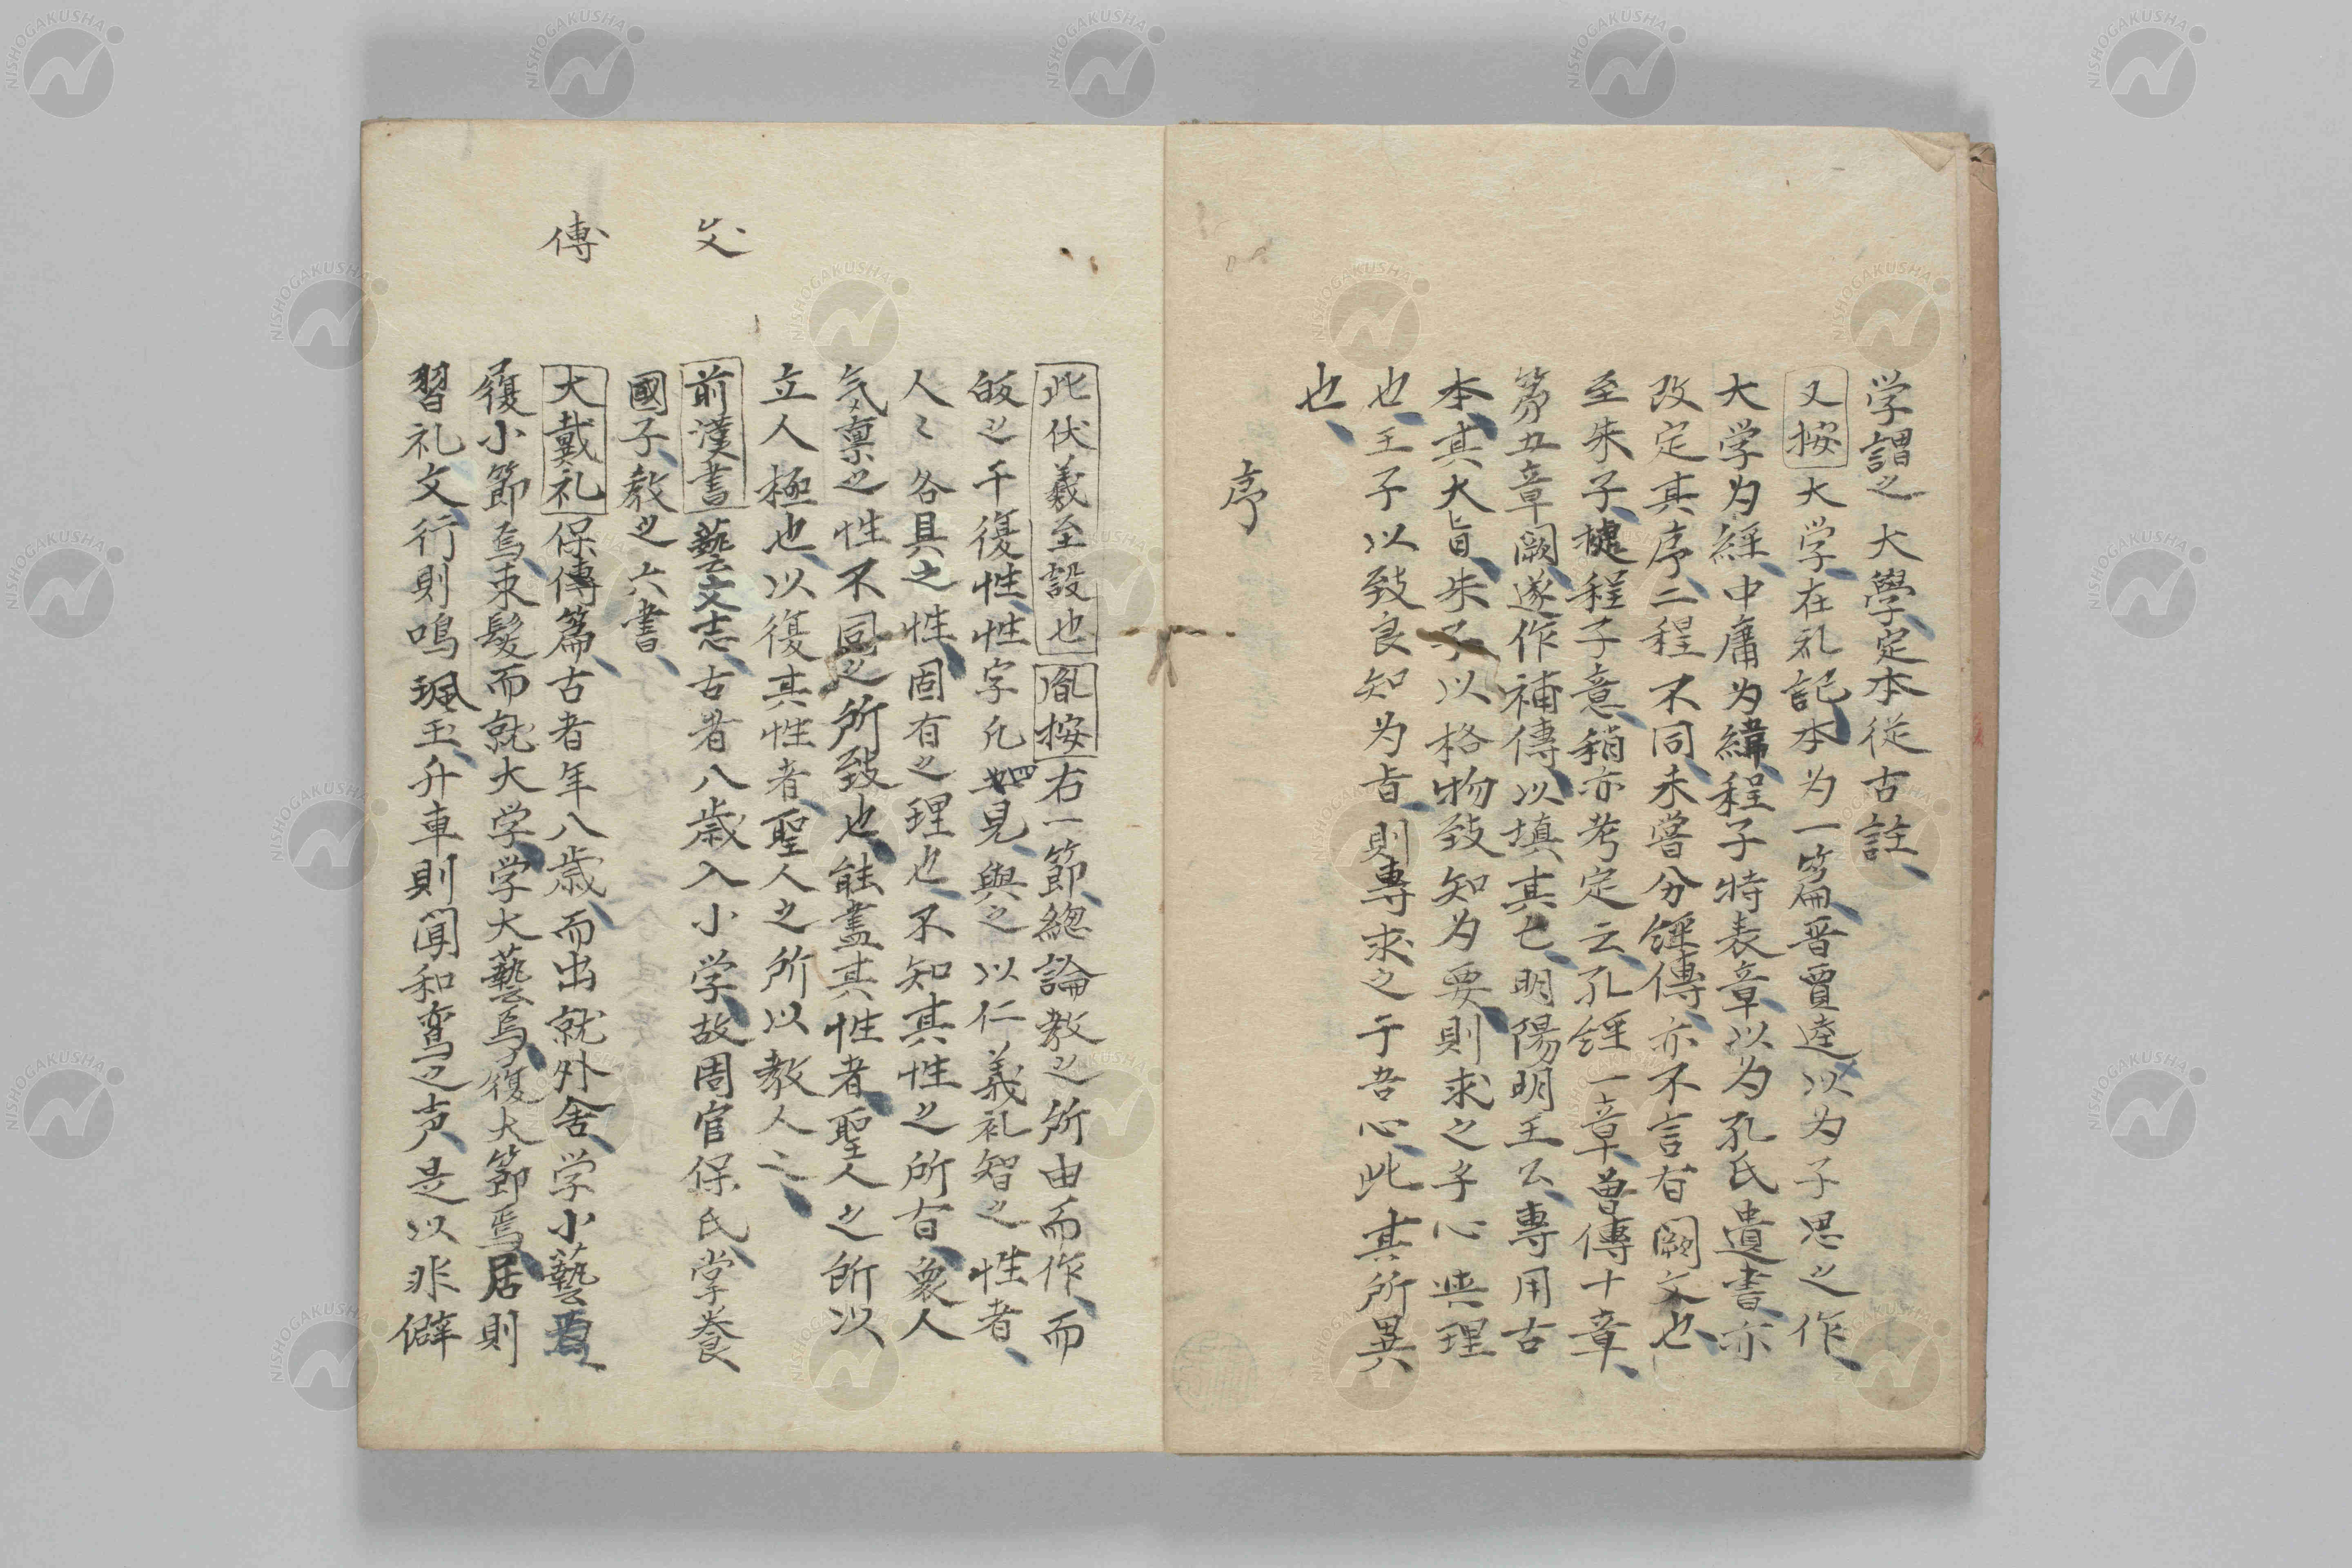 学謂之大學定本従古註、
又按大学在礼記、本为一篇、晋賈逵以为子思之作、
大学为経、中庸为緯、程子特表章、以为孔氏遺書、亦
改定其序、二程不同、未嘗分経傳、亦不言有闕文也、
至朱子、揵程子意、稍亦考定云、孔経一章、曽傳十章、
第五章闕、遂作補傳、以填其亡、明陽明王公、專用古
本、其大旨、朱子以格物致知为要、則求之乎心与理
也、王子以致良知为旨、則專求之于吾心、此其所異
也、
序
此伏羲至設也 胤按右一節、総論教之所由而作、而
皈之于復性、性字凢四見、與之以仁義礼智之性者、
人々各具之性、固有之理也、不知其性之所有、衆人
気禀之性不同之所致也、能盡其性者、聖人之所以
立人極也、以復其性者、聖人之所以教人之、
前漢書藝文志、古者八歳入小学、故周官保氏掌養
國子、教之六書、
大戴礼保傳篇、古者年八歳、而出就外舍、学小藝
履小節焉、束髮而就大学、学大藝焉、履大節焉、居則
習礼文、行則鳴珮玉、升車則聞和鸞之声、是以非僻
文
傳
NISHOGAKUSHA